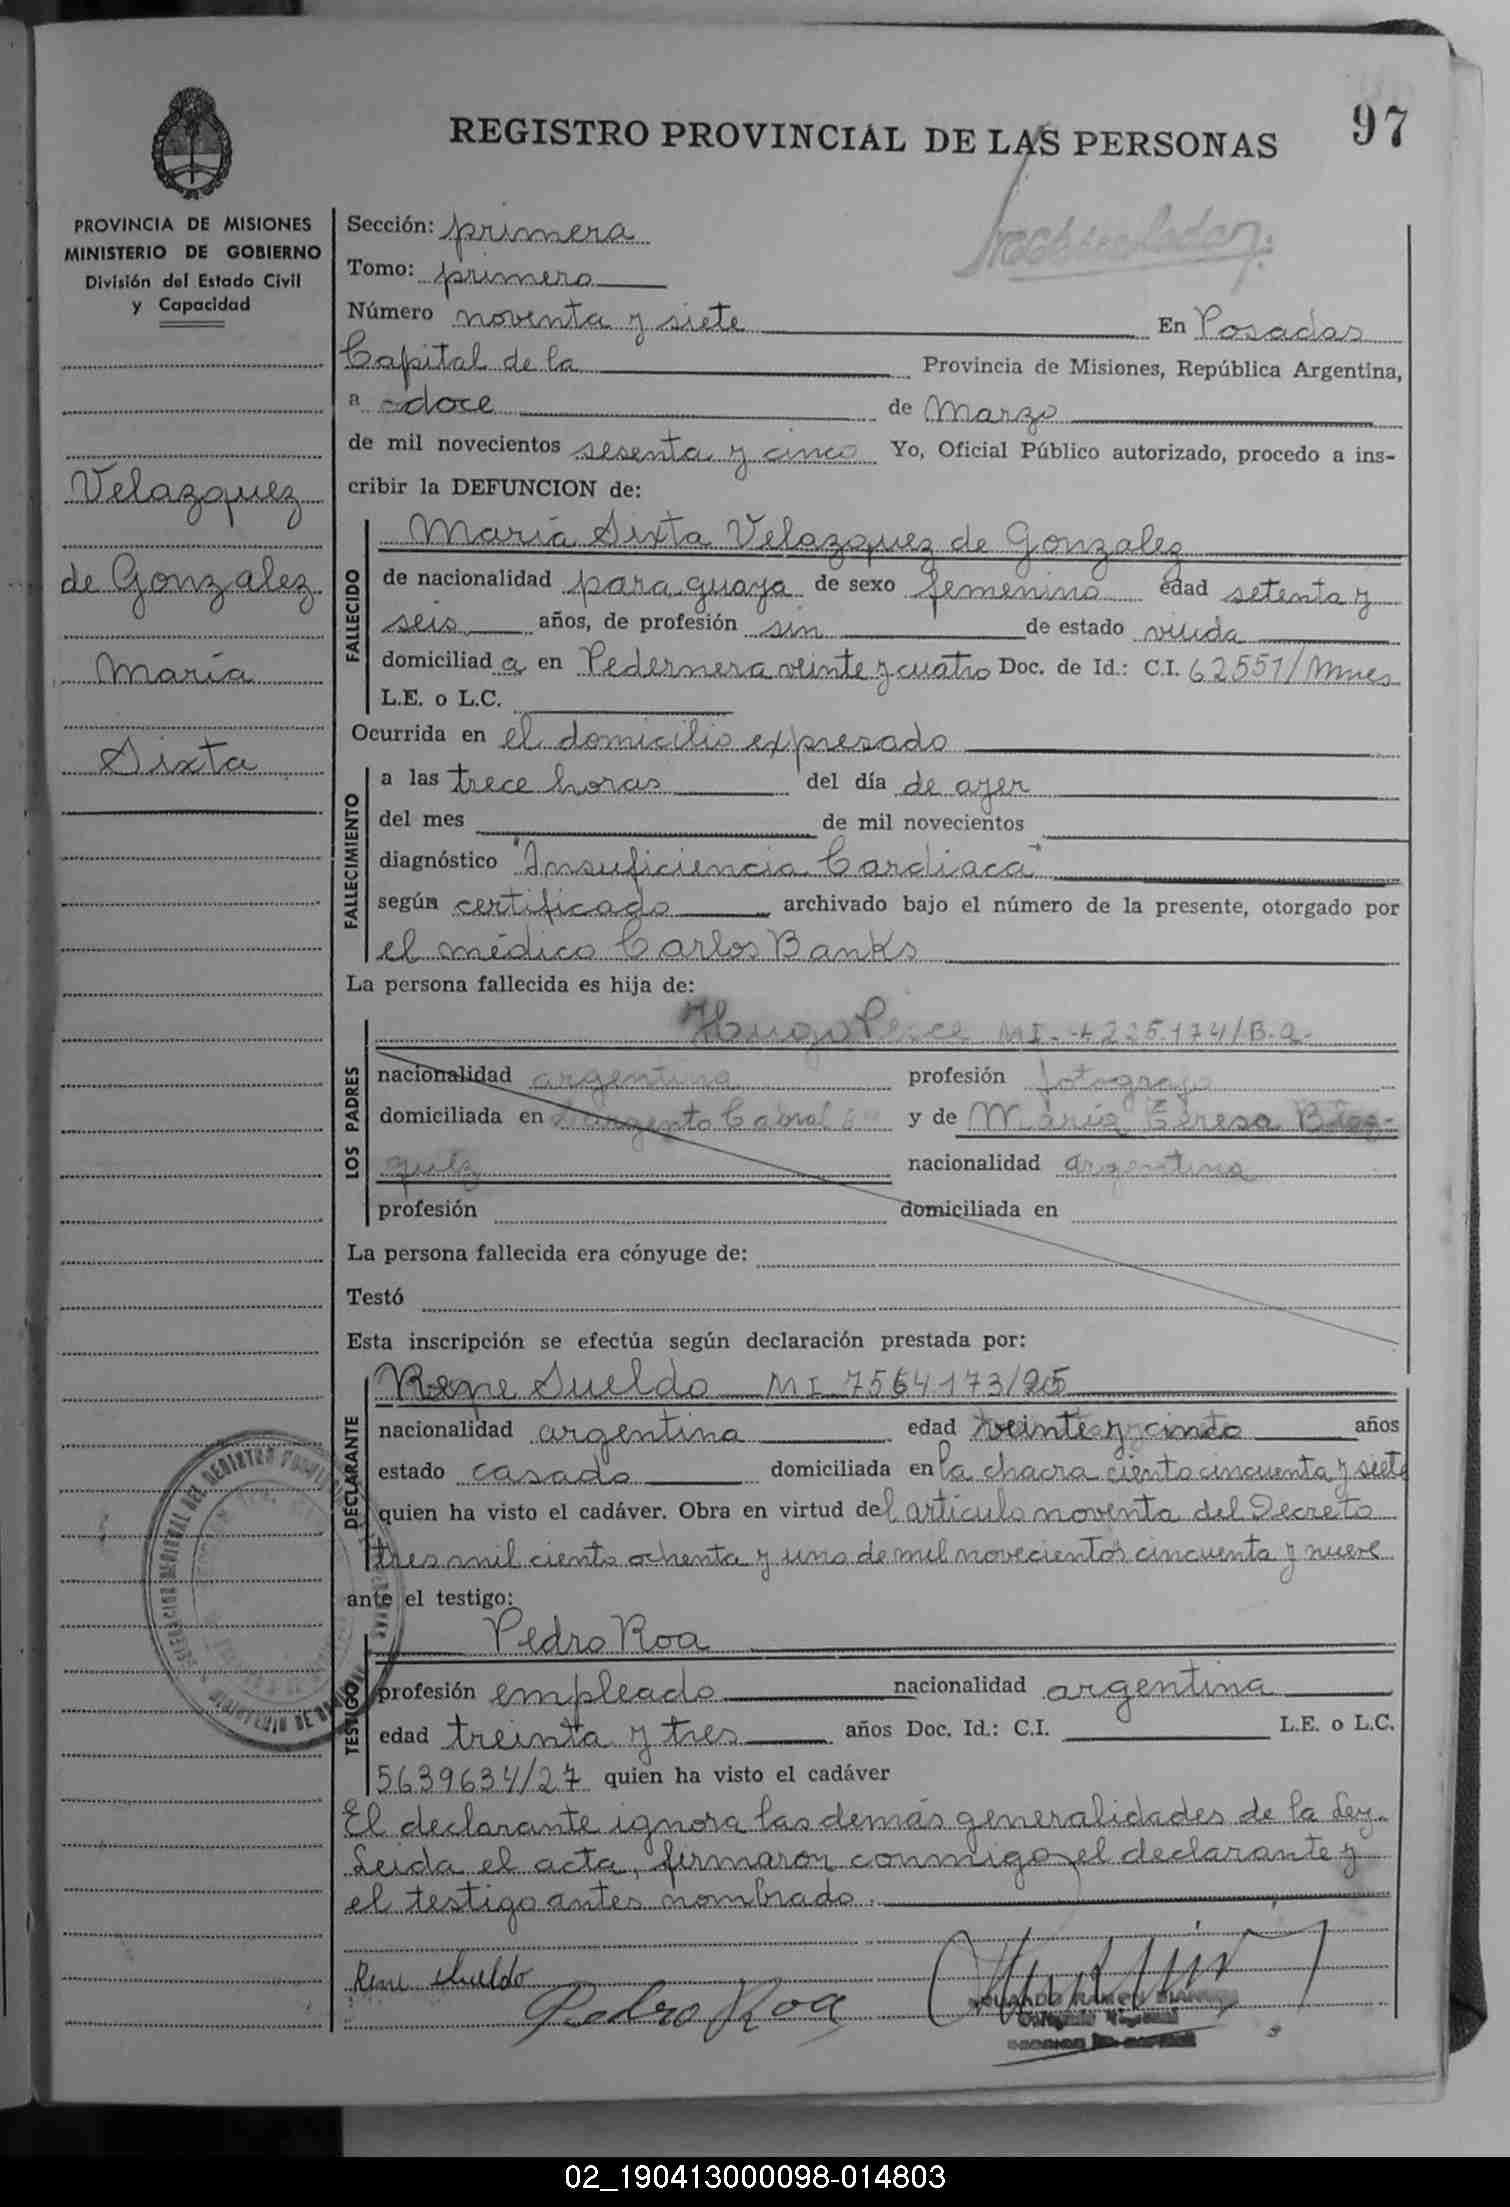 97
REGISTRO PROVINCIAL DE LAS PERSONAS
PROVINCIA DE MISIONES
MINISTERIO DE GOBIERNO
División del Estado Civil
y Capacidad
Velazquez
de Gonzalez
María
Sixta
Sección: primera
Tomo: primero
Número noventa y siete En Posadas
Capital de la Provincia de Misiones, República Argentina,
a doce de Marzo
de mil novecientos sesenta y cinco Yo, Oficial Público autorizado, procedo a ins-
cribir la DEFUNCION de:
FALLECIDO
María Sixta Velazquez de Gonzalez
de nacionalidad paraguaya de sexo femenino edad setenta y
seis años, de profesión sin de estado viuda
domiciliad a en Pedernera veinte y cuatro Doc. de Id.: C.I. 62557/Mnes
L.E. o L.C.
Ocurrida en el domicilio expresado
FALLECIMIENTO
a las trece horas del día de ayer
del mes de mil novecientos
diagnóstico "Insuficiencia Cardiaca"
según certificado archivado bajo el número de la presente, otorgado por
el médico Carlos Banks
La persona fallecida es hija de:
LOS PADRES
Hugo MI. 4225.174/B.a.
nacionalidad argentina profesión fotografo
domiciliada en Sargento Cabral y de María Teresa
nacionalidad argentina
profesión domiciliada en
La persona fallecida era cónyuge de:
Testó
Esta inscripción se efectúa según declaración prestada por:
DECLARANTE
Rene Sueldo MI 7564173/25
nacionalidad argentina edad años
estado casado domiciliada en la chacra ciento cincuenta y siete
quien ha visto el cadáver. Obra en virtud del articulo noventa del Decreto
tres mil ciento ochenta y uno de mil novecientos cincuenta y nueve
ante el testigo:
TESTIGO
Pedro Roa
profesión empleado nacionalidad argentina
edad treinta y tres años Doc. Id.: C.I. L.E. o L.C.
5639634/27 quien ha visto el cadáver
El declarante ignora las demás generalidades de la Ley.
Leida el acta, firmaron conmigo el declarante y
el testigo antes nombrado.
Rene Sueldo
Pedro Roa
EDUARDO RAMON
02_190413000098-014803